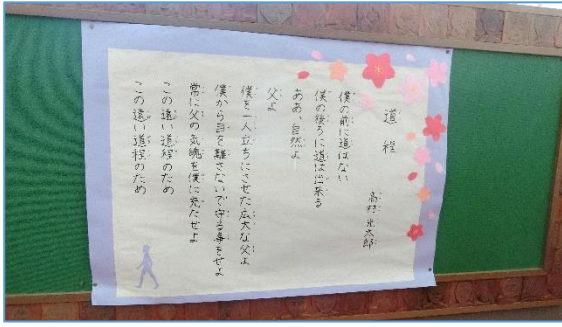 道程
高村光太郎
僕の前に道はない
僕の後ろに道は出来る
ああ、自然よ
父よ
僕を一人立ちにさせた広大な父よ
僕から目を離さないで守る事をせよ
常に父の気魄を僕に充たせよ
この遠い道程のため
この遠い道程のため